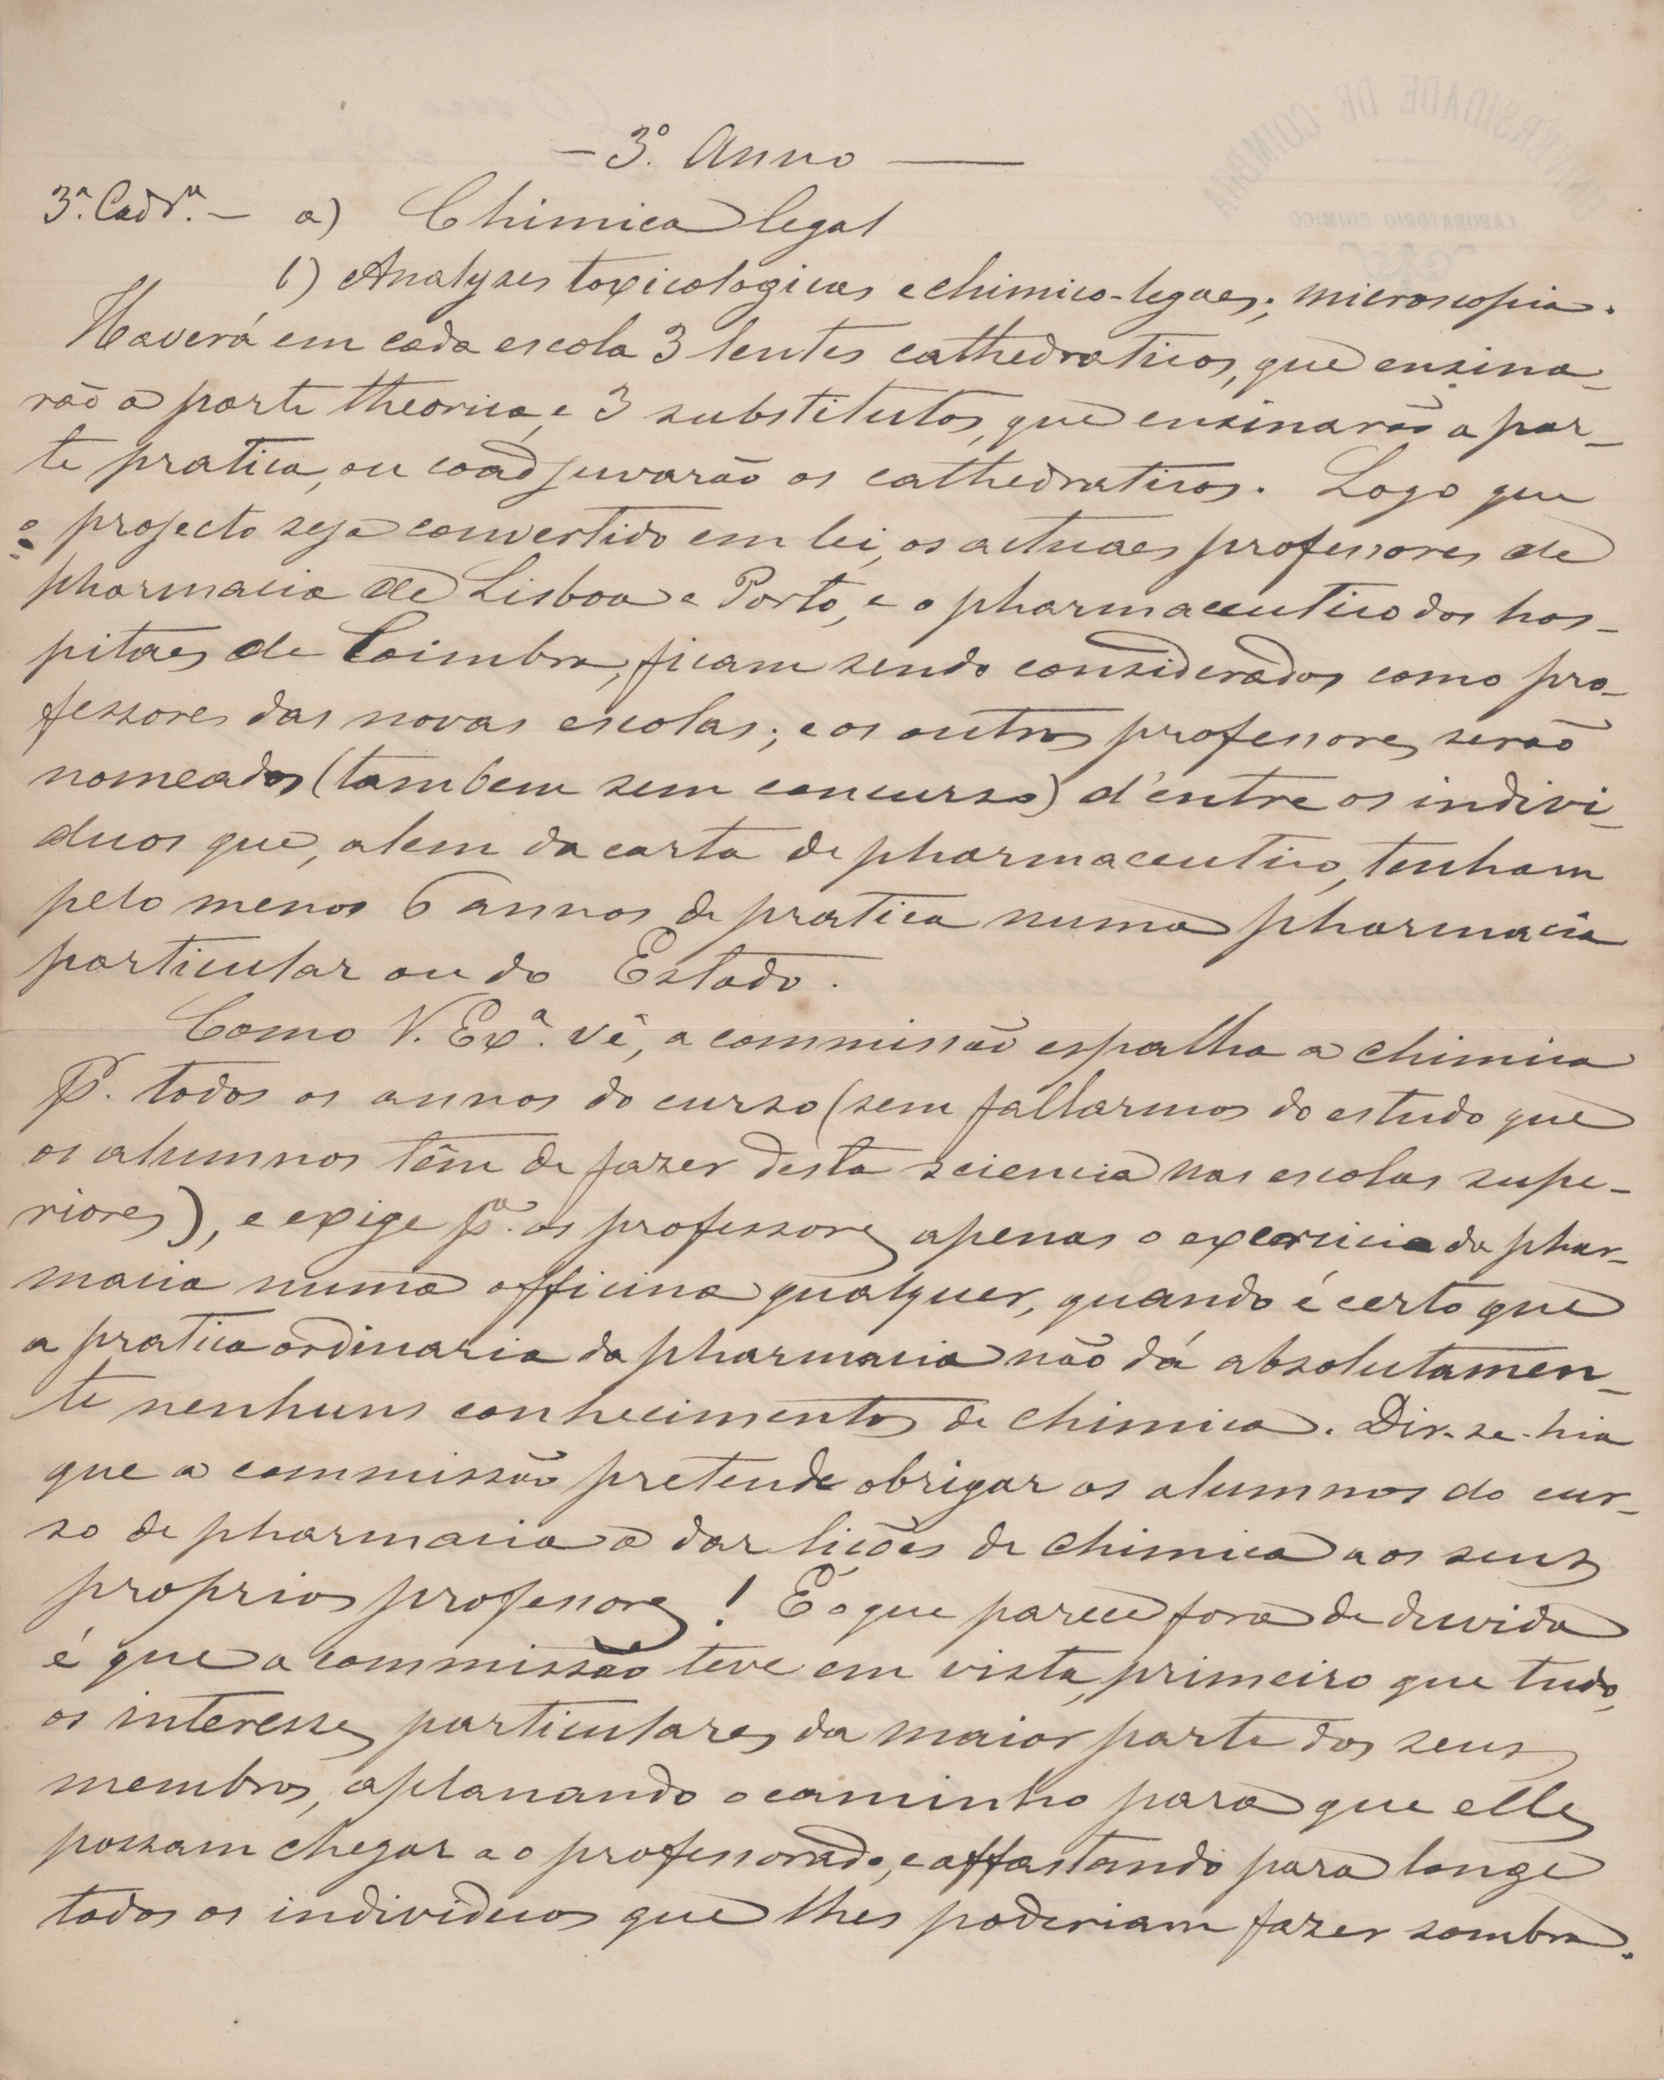 — 3º. Anno —
3ª. Cadrª. — a) Chimica legal
b) Analyses toxicologicas e chimico-legaes; microscopia.
Haverá em cada escola 3 lentes cathedraticos, que ensina-
rão a parte theorica, e 3 substitutos, que ensinarão a par-
te pratica, ou coadjuvarão os cathedraticos. Logo que
o projecto seja convertido em lei, os actuaes professores de
pharmacia de Lisboa e Porto, e o pharmaceutico dos hos-
pitaes de Coimbra, ficam sendo considerados como pro-
fessores das novas escolas; e os outros professores serão
nomeados (tambem sem concurso) d'entre os indivi-
duos que, alem da carta de pharmaceutico, tenham
pelo menos 6 annos de pratica numa pharmacia
particular ou do Estado.
Como V. Exª. vê, a commissão espalha a chimica
p. todos os annos do curso (sem fallarmos do estudo que
os alumnos têm de fazer desta sciencia nas escolas supe-
riores), e exige pª. os professores apenas o exercicio da phar-
macia numa officina qualquer, quando é certo que
a pratica ordinaria da pharmacia não dá absolutamen-
te nenhuns conhecimentos de chimica. Dir-se-hia
que a commissão pretende obrigar os alumnos do cur-
so de pharmacia a dar lições de chimica aos seus
proprios professores! E o que parece fora de duvida
é que a commissão teve em vista, primeiro que tudo,
os interesses particulares da maior parte dos seus
membros, aplanando o caminho para que elles
possam chegar ao professorado, e affastando para longe
todos os individuos que lhes poderiam fazer sombra.
UNIVERSIDADE DE COIMBRA
LABORATORIO CHIMICO